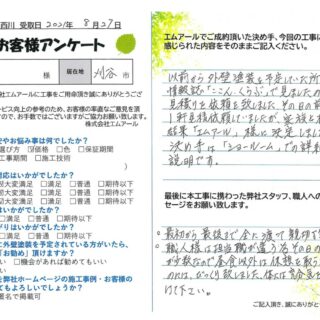 西川 受取日 2021年 8月27日
お客様アンケート
様 居在地 刈谷市
社エムアールに工事をご用命頂き誠にありがとうござ
ービス向上の参考のため、お客様の率直なご意見を頂
ますので、お手数ではございますがご協力お願い致します。
株式会社エムアール
をやお悩み事は何でしたか?
選び方 ☑価格 □色 □保証期間
工事期間 □施工技術
対応はいかがでしたか?
□大変満足 □満足 □普通 □期待以下
がりはいかがでしたか?
に外壁塗装を予定されている方がいたら、
「お勧め」頂けますか?
い □機会があれば勧めてもいい
い
を弊社ホームページの施工事例・お客様の
てもよろしいでしょうか?
匿名で掲載可
エムアールでご成約頂いた決め手、今回の工事に
感じられた内容をそのままご記入ください。
以前から外壁塗装を予定していた所
情報誌「こんくらぶ」で見ましたの
見積りを依頼を致しました。その日の前
1軒見積依頼していましたが、家族と相
結果「エムアール」様に決定しました
決め手は「ショールーム」での詳細
説明です。
最後に本工事に携わった弊社スタッフ、職人への
セージをお願い致します。
最初から最後まで全てに渡って親切丁
職人様は担当職が違う為その日の
が少数なので昼食以外は休憩を取ら
のには、びっくり致しました。
けて下さい。
ご記入頂き、誠にありがと